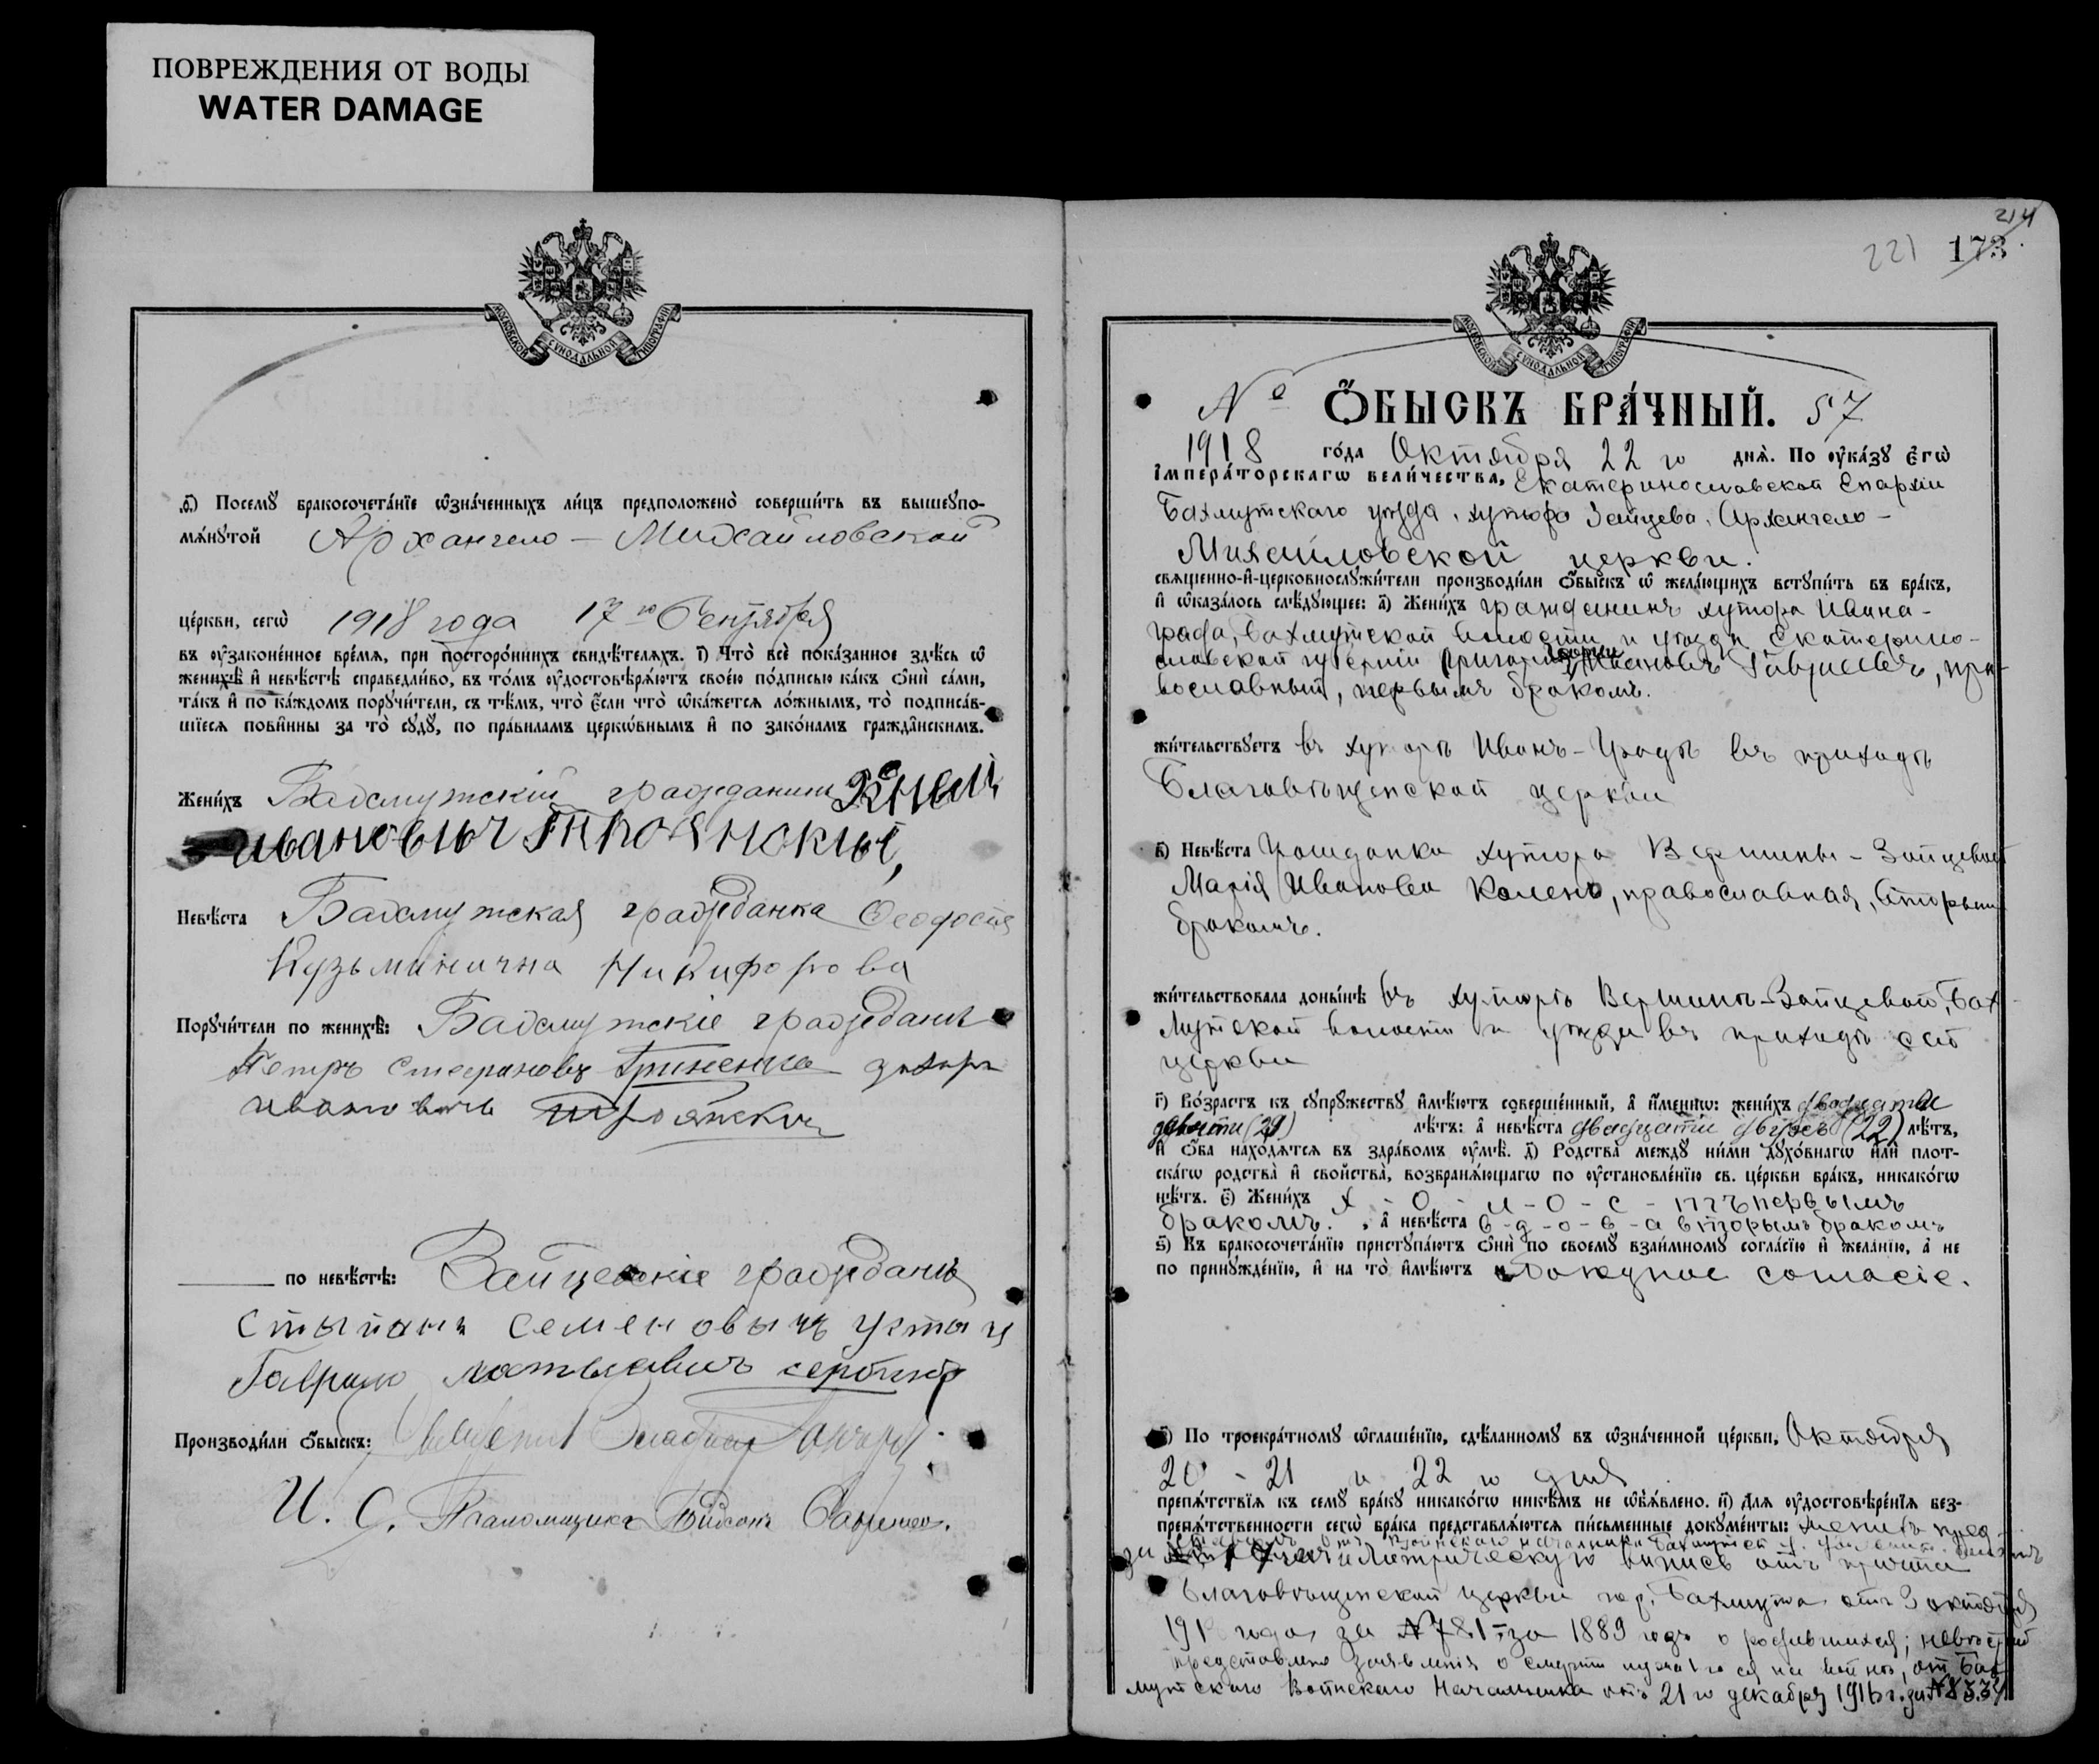 ПОВРЕЖДЕНИЯ ОТ ВОДЫ
WATER DAMAGE
МОСКОВСКОЙ СѴНОДАЛЬНОЙ ТИПОГРАФІИ
Посемꙋ бракосочета́нїе ѡ҆зна́ченныхъ ли́цъ предположено̀ соверши́ть въ вышеꙋпо-
мѧ́нꙋтой Архангело - Михайловской
це́ркви, сегѡ̀ 1918 года 17 го Сентября
въ ᲂу҆зако́ненное вре́мѧ, при посторо́ннихъ свидѣ́телѧхъ. і҃) Что̀ всѐ пока́занное здѣ́сь ѡ҆
женихѣ̀ и҆ невѣ́стѣ справедли́во, въ то́мъ ᲂу҆достовѣрѧ́ютъ свое́ю по́дписью ка́къ ѻ҆нѝ са́ми,
та́къ и҆ по ка́ждомъ порꙋчи́тели, съ тѣ́мъ, что̀ є҆́сли что̀ ѡ҆ка́жетсѧ ло́жнымъ, то̀ подписа́в-
шїесѧ пови́нны за то̀ сꙋдꙋ̀, по пра́виламъ церкѡ́внымъ и҆ по зако́намъ гражда̑нскимъ.
Жени́хъ Бахмутскій гражданинъ
ивановыч
Невѣ́ста Бахмутская гражданка Феодосія
Кузьминична Никифорова
Порꙋчи́тели по женихѣ̀: Бахмутскіе граждане
Петръ Стефановъ Гриненко захаръ
ивановичъ Троянский
по невѣ́стѣ: Зайцевскіе граждане
Стыпанъ Семеновычъ
Гаврило
Производи́ли ѻ҆́быскъ:
И. С. Псаломщика
214
221 173
МОСКОВСКОЙ СѴНОДАЛЬНОЙ ТИПОГРАФІИ
№ Ѻ҆́БЫСКЪ БРА́ЧНЫЙ. 57
1918 го́да Октября 22 го днѧ̀. По ᲂу҆ка́зꙋ є҆гѡ̀
і҆мпера́торскагѡ вели́чества, Екатеринославской Епархіи
Бахмутскаго уѣзда, хутора Зайцева, Архангело -
Михайловской церкви.
свѧще́нно-и҆-церковнослꙋжи́тели производи́ли ѻ҆́быскъ ѡ҆ жела́ющихъ встꙋпи́ть въ бра́къ,
и҆ ѡ҆каза́лось слѣ́дꙋющее: а҃) Жени́хъ гражданинъ хутора Ивана -
града, Бахмутской волости и уѣзда Екатерино -
славской губерніи Григорій Ивановъ, пра-
вославный, первымъ бракомъ.
жи́тельствꙋетъ въ хуторѣ Иванъ-Градѣ въ приходѣ
Благовѣщенской церкви
в҃) Невѣ́ста Гражданка хутора Вершины - Зайцевой
Марія Иванова Колено, православная, вторымъ
бракомъ.
жи́тельствовала доны́нѣ въ хуторѣ Вершинѣ-Зайцевой, Бах-
мутской волости и уѣзда въ приходѣ сей
церкви
г҃) Во́зрастъ къ сꙋпрꙋ́жествꙋ и҆мѣ́ютъ соверше́нный, а҆ и҆́меннѡ: жени́хъ двадцати
девяти (29) лѣ́тъ: а҆ невѣ́ста двадцати двухъ (22) лѣ́тъ,
и҆ ѻ҆́ба нахо́дѧтсѧ въ здра́вомъ ᲂу҆мѣ̀. д҃) Родства̀ междꙋ ни́ми дꙋхо́внагѡ и҆лѝ плот-
ска́гѡ родства̀ и҆ свойства̀, возбранѧ́ющагѡ по ᲂу҆становле́нїю св. це́ркви бра́къ, никако́гѡ
нѣ́тъ. є҃) Жени́хъ х - о - л - о - с - тъ первымъ
бракомъ., а҆ невѣ́ста в - д - о - в - а вторымъ бракомъ
ѕ҃) Къ бракосочета́нїю пристꙋпа́ютъ ѻ҆нѝ по своемꙋ̀ взаи́мномꙋ согла́сїю и҆ жела́нїю, а҆ не
по принꙋжде́нїю, и҆ на то̀ и҆мѣ́ютъ обоюдное согласіе.
з҃) По троекра́тномꙋ ѡ҆глаше́нїю, сдѣ́ланномꙋ въ ѡ҆зна́ченной це́ркви, Октября
20 - 21 и 22 го дня
препѧ́тствїѧ къ семꙋ̀ бра́кꙋ никако́гѡ никѣ́мъ не ѡ҆б̾ѧ́влено. и҃) Длѧ ᲂу҆достовѣре́нїѧ без-
препѧ́тственности сегѡ̀ бра́ка представлѧ́ютсѧ пи́сьменные докꙋме́нты: женихъ пред-
и Метрическую выпись отъ причта
Благовѣщенской церкви гор. Бахмута отъ 3 октября
191 года за № 781, за 1889 годъ о родившихся; невѣстой
представлено заявленія о смерти мужа ея на войнѣ, от Бах-
мутского Воинского Начальника отъ 21 го декабря 1916 г. за №